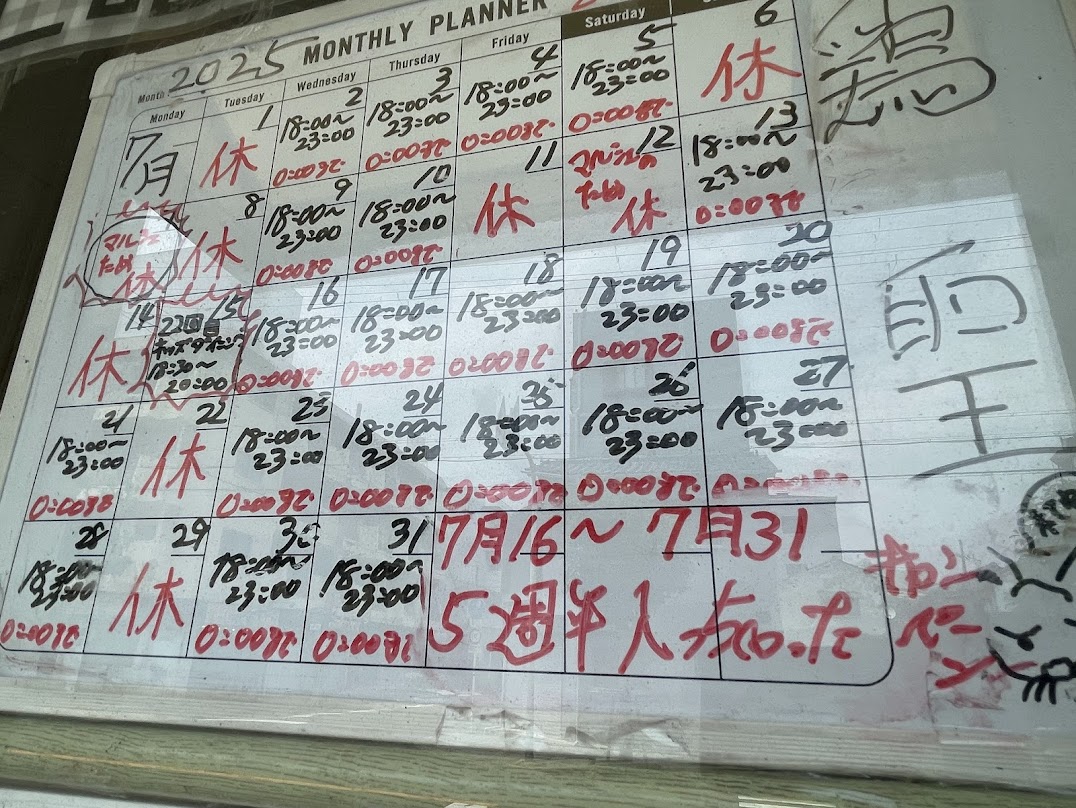 MONTHLY PLANNER
Month 2025
Monday Tuesday Wednesday Thursday Friday Saturday
7月
1
休
2
18:00~
23:00
0:00まで
3
18:00~
23:00
0:00まで
4
18:00~
23:00
0:00まで
5
18:00~
23:00
0:00まで
6
休
マルシェ
ため
休
8
休
9
18:00~
23:00
0:00まで
10
18:00~
23:00
0:00まで
11
休
12
マルシェの
ため
休
13
18:00~
23:00
0:00まで
14
休
15
22回目
18:30~
20:00
16
18:00~
23:00
0:00まで
17
18:00~
23:00
0:00まで
18
18:00~
23:00
0:00まで
19
18:00~
23:00
0:00まで
20
18:00~
23:00
0:00まで
21
18:00~
23:00
0:00まで
22
休
23
18:00~
23:00
0:00まで
24
18:00~
23:00
0:00まで
25
18:00~
23:00
0:00まで
26
18:00~
23:00
0:00まで
27
18:00~
23:00
0:00まで
28
18:00~
23:00
0:00まで
29
休
30
18:00~
23:00
0:00まで
31
18:00~
23:00
0:00まで
7月16~7月31
5週年